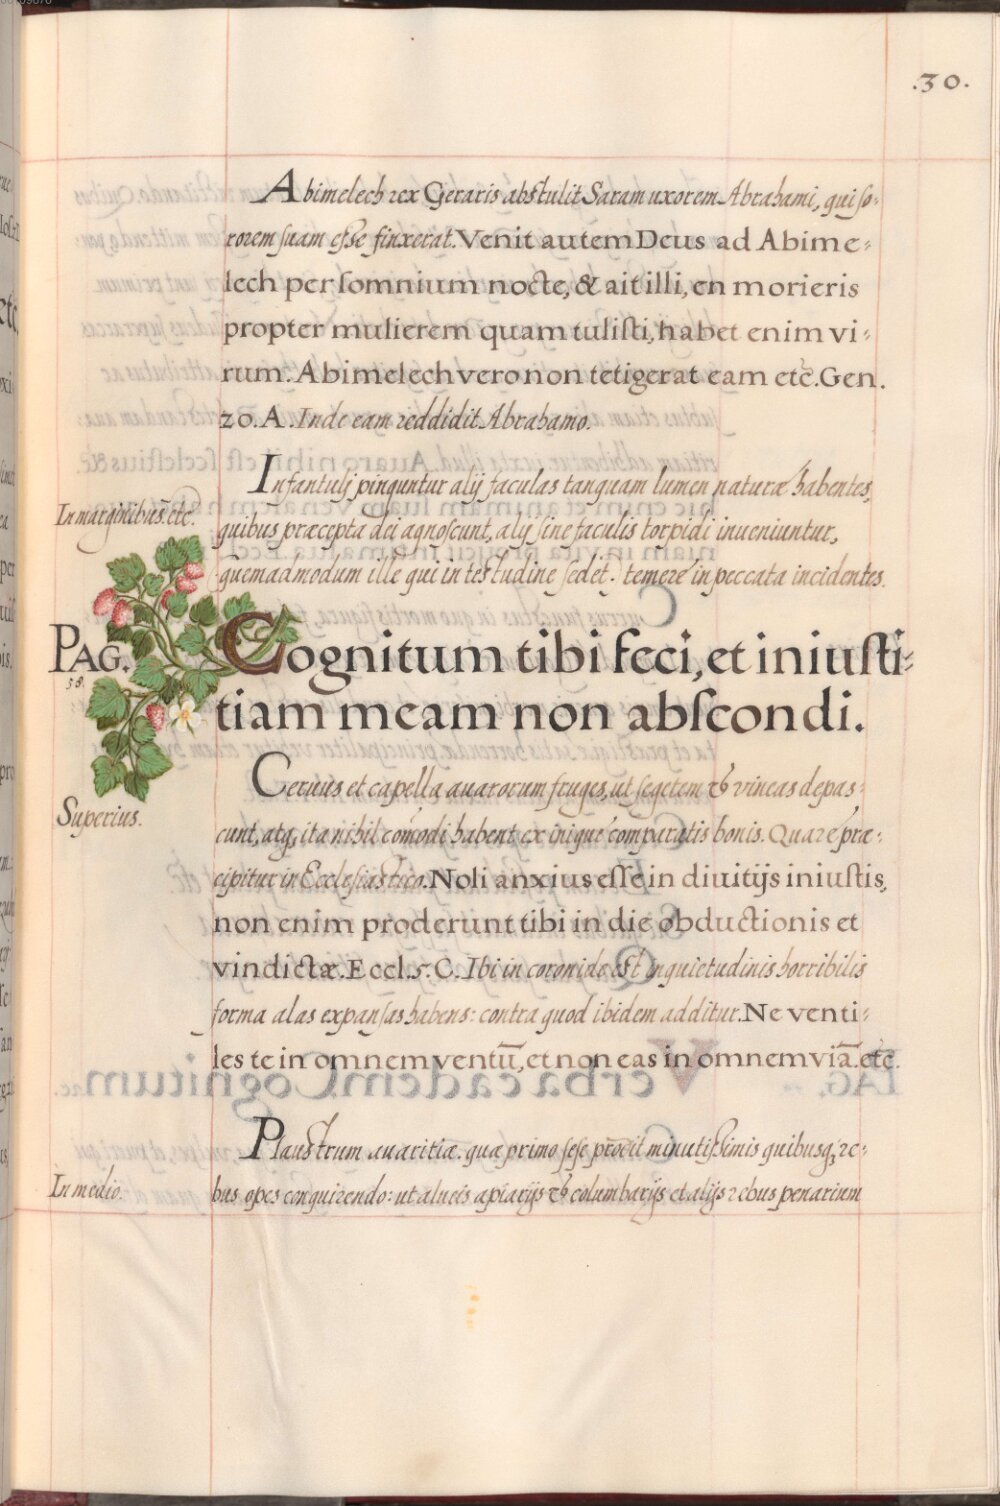 .30.
Abimelech rex Geraris abstulit Saram uxorem Abrahami, qui so-
rorem suam esse finxerat. Venit autem Deus ad Abime-
lech per somnium nocte, & ait illi, en morieris
propter mulierem quam tulisti, habet enim vi-
rum. Abimelech vero non tetigerat eam etc. Gen.
20. A. Inde eam reddidit Abrahamo.
Infantulj pinguntur alij faculas tanquam lumen naturæ habentes,
In marginibus. etc.
quibus præcepta dei agnoscunt, alij sine faculis torpidi inueniuntur,
quemadmodum ille qui in testudine sedet. temerè in peccata incidentes.
PAG.
58.
Cognitum tibi feci, et iniusti-
tiam meam non abscondi.
Ceruus et capella auarorum fruges, ut segetem & vineas depas-
Superius.
cunt, atq, ita nihil com̄odi habent ex iniquè comparatis bonis. Quarè præ-
cipitur in Ecclesiastico. Noli anxius esse in diuitijs iniustis,
non enim proderunt tibi in die obductionis et
vindictæ. Eccl. 5. C. Ibi in coronide est inquietudinis horribilis
forma alas expansas habens: contra quod ibidem additur. Ne venti-
les te in omnem ventū, et non eas in omnem viā. etc.
Plaustrum auaritiæ. quæ primo sese prodit minutissimis quibusq, re-
In medio.
bus opes conquirendo: ut alueis apiarijs & columbarijs et alijs rebus penarium